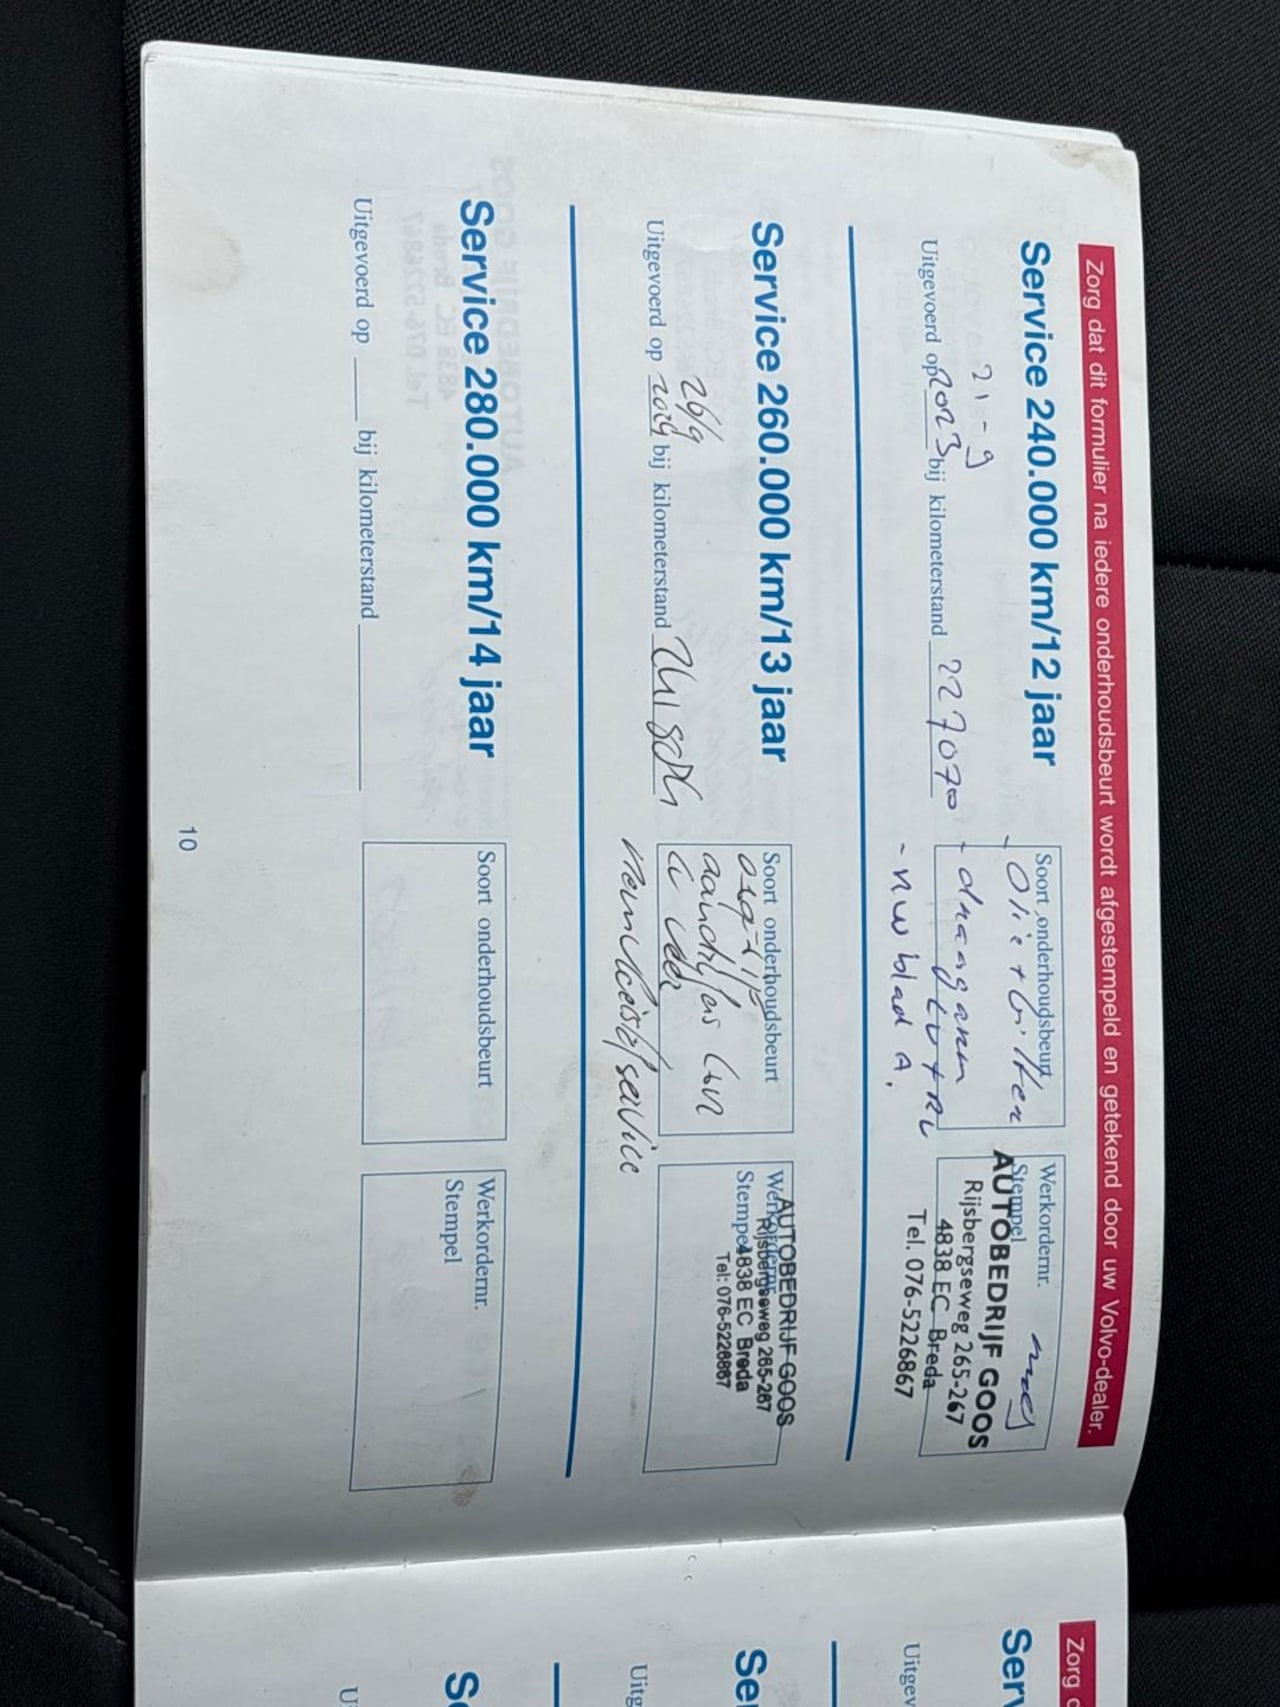 Zorg dat dit formulier na iedere onderhoudsbeurt wordt afgestempeld en getekend door uw Volvo-dealer.
Service 240.000 km/12 jaar
21-9
Uitgevoerd op 2023 bij kilometerstand 227070
Soort onderhoudsbeurt
- Olie + filter
- draagarm
LV + RV
- nw blad A.
Werkordernr.
Stempel
AUTOBEDRIJF GOOS
Rijsbergseweg 265-267
4838 EC Breda
Tel. 076-5226867
Service 260.000 km/13 jaar
26/9
Uitgevoerd op 2024 bij kilometerstand
Soort onderhoudsbeurt
service
Werkordernr.
Stempel
AUTOBEDRIJF GOOS
Rijsbergseweg 265-267
4838 EC Breda
Tel: 076-5226867
Service 280.000 km/14 jaar
Uitgevoerd op bij kilometerstand
Soort onderhoudsbeurt
Werkordernr.
Stempel
10
Zorg